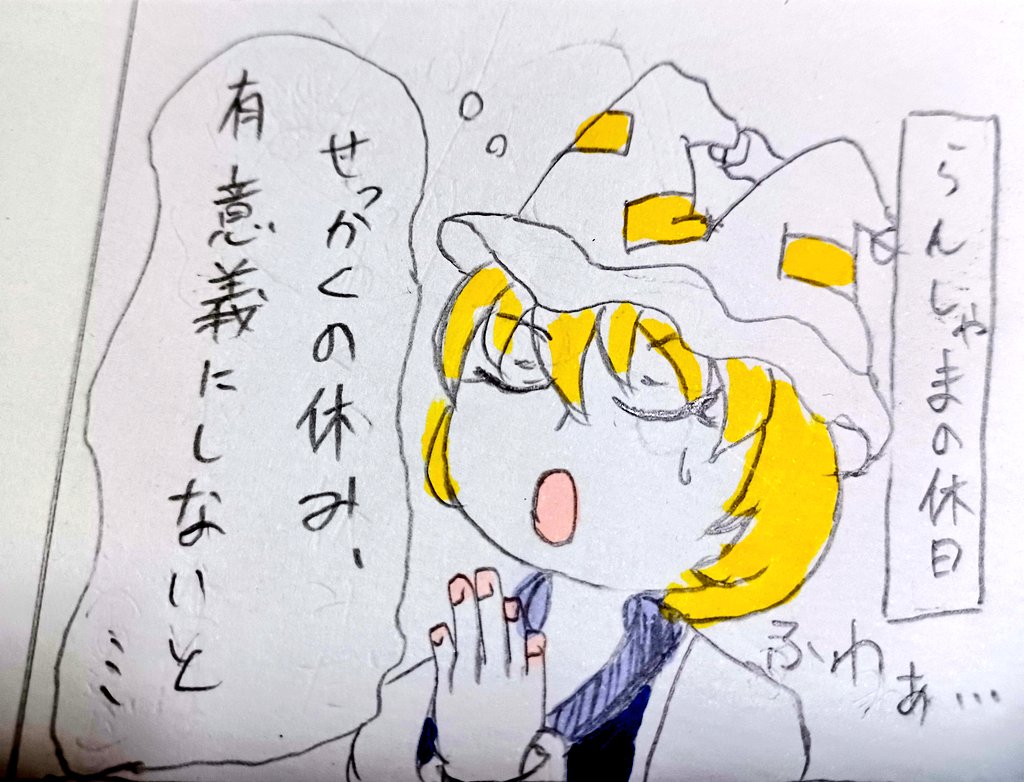 らんしゃまの休日
せっかくの休み、
有意義にしないと…
ふわぁ…